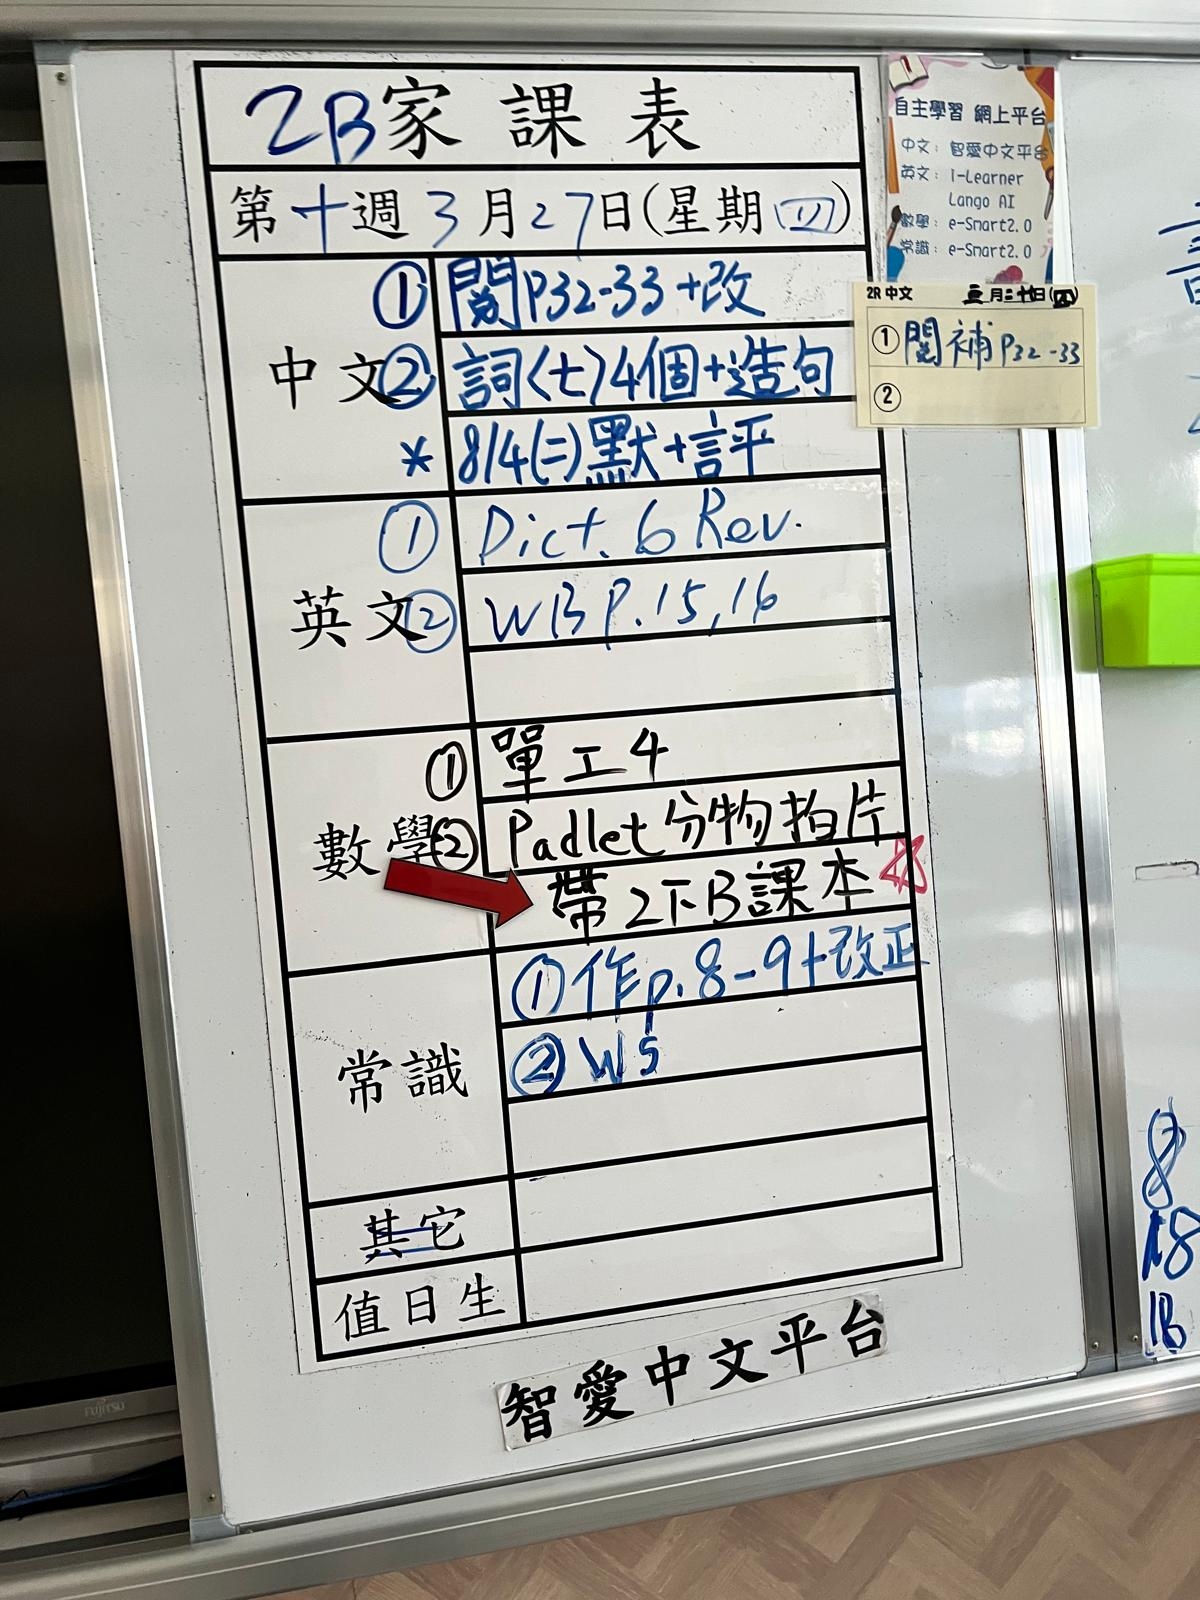 2B家課表
第十週3月27日(星期四)
中文
① 閱P32-33+改
② 詞(七)4個+造句
* 8/4(二)默+評
英文
① Dict. 6 Rev.
② WB P.15,16
數學
① 單工4
② Padlet分物拍片
帶2下B課本
常識
①作p.8-9+改正
②WS
其它
值日生
智愛中文平台
自主學習 網上平台
中文：智愛中文平台
英文：i-Learner
Lango AI
數學：e-Smart2.0
常識：e-Smart2.0
2R 中文 三月二十七日(四)
① 閱補P32-33
②
FUJITSU
8
18
1B